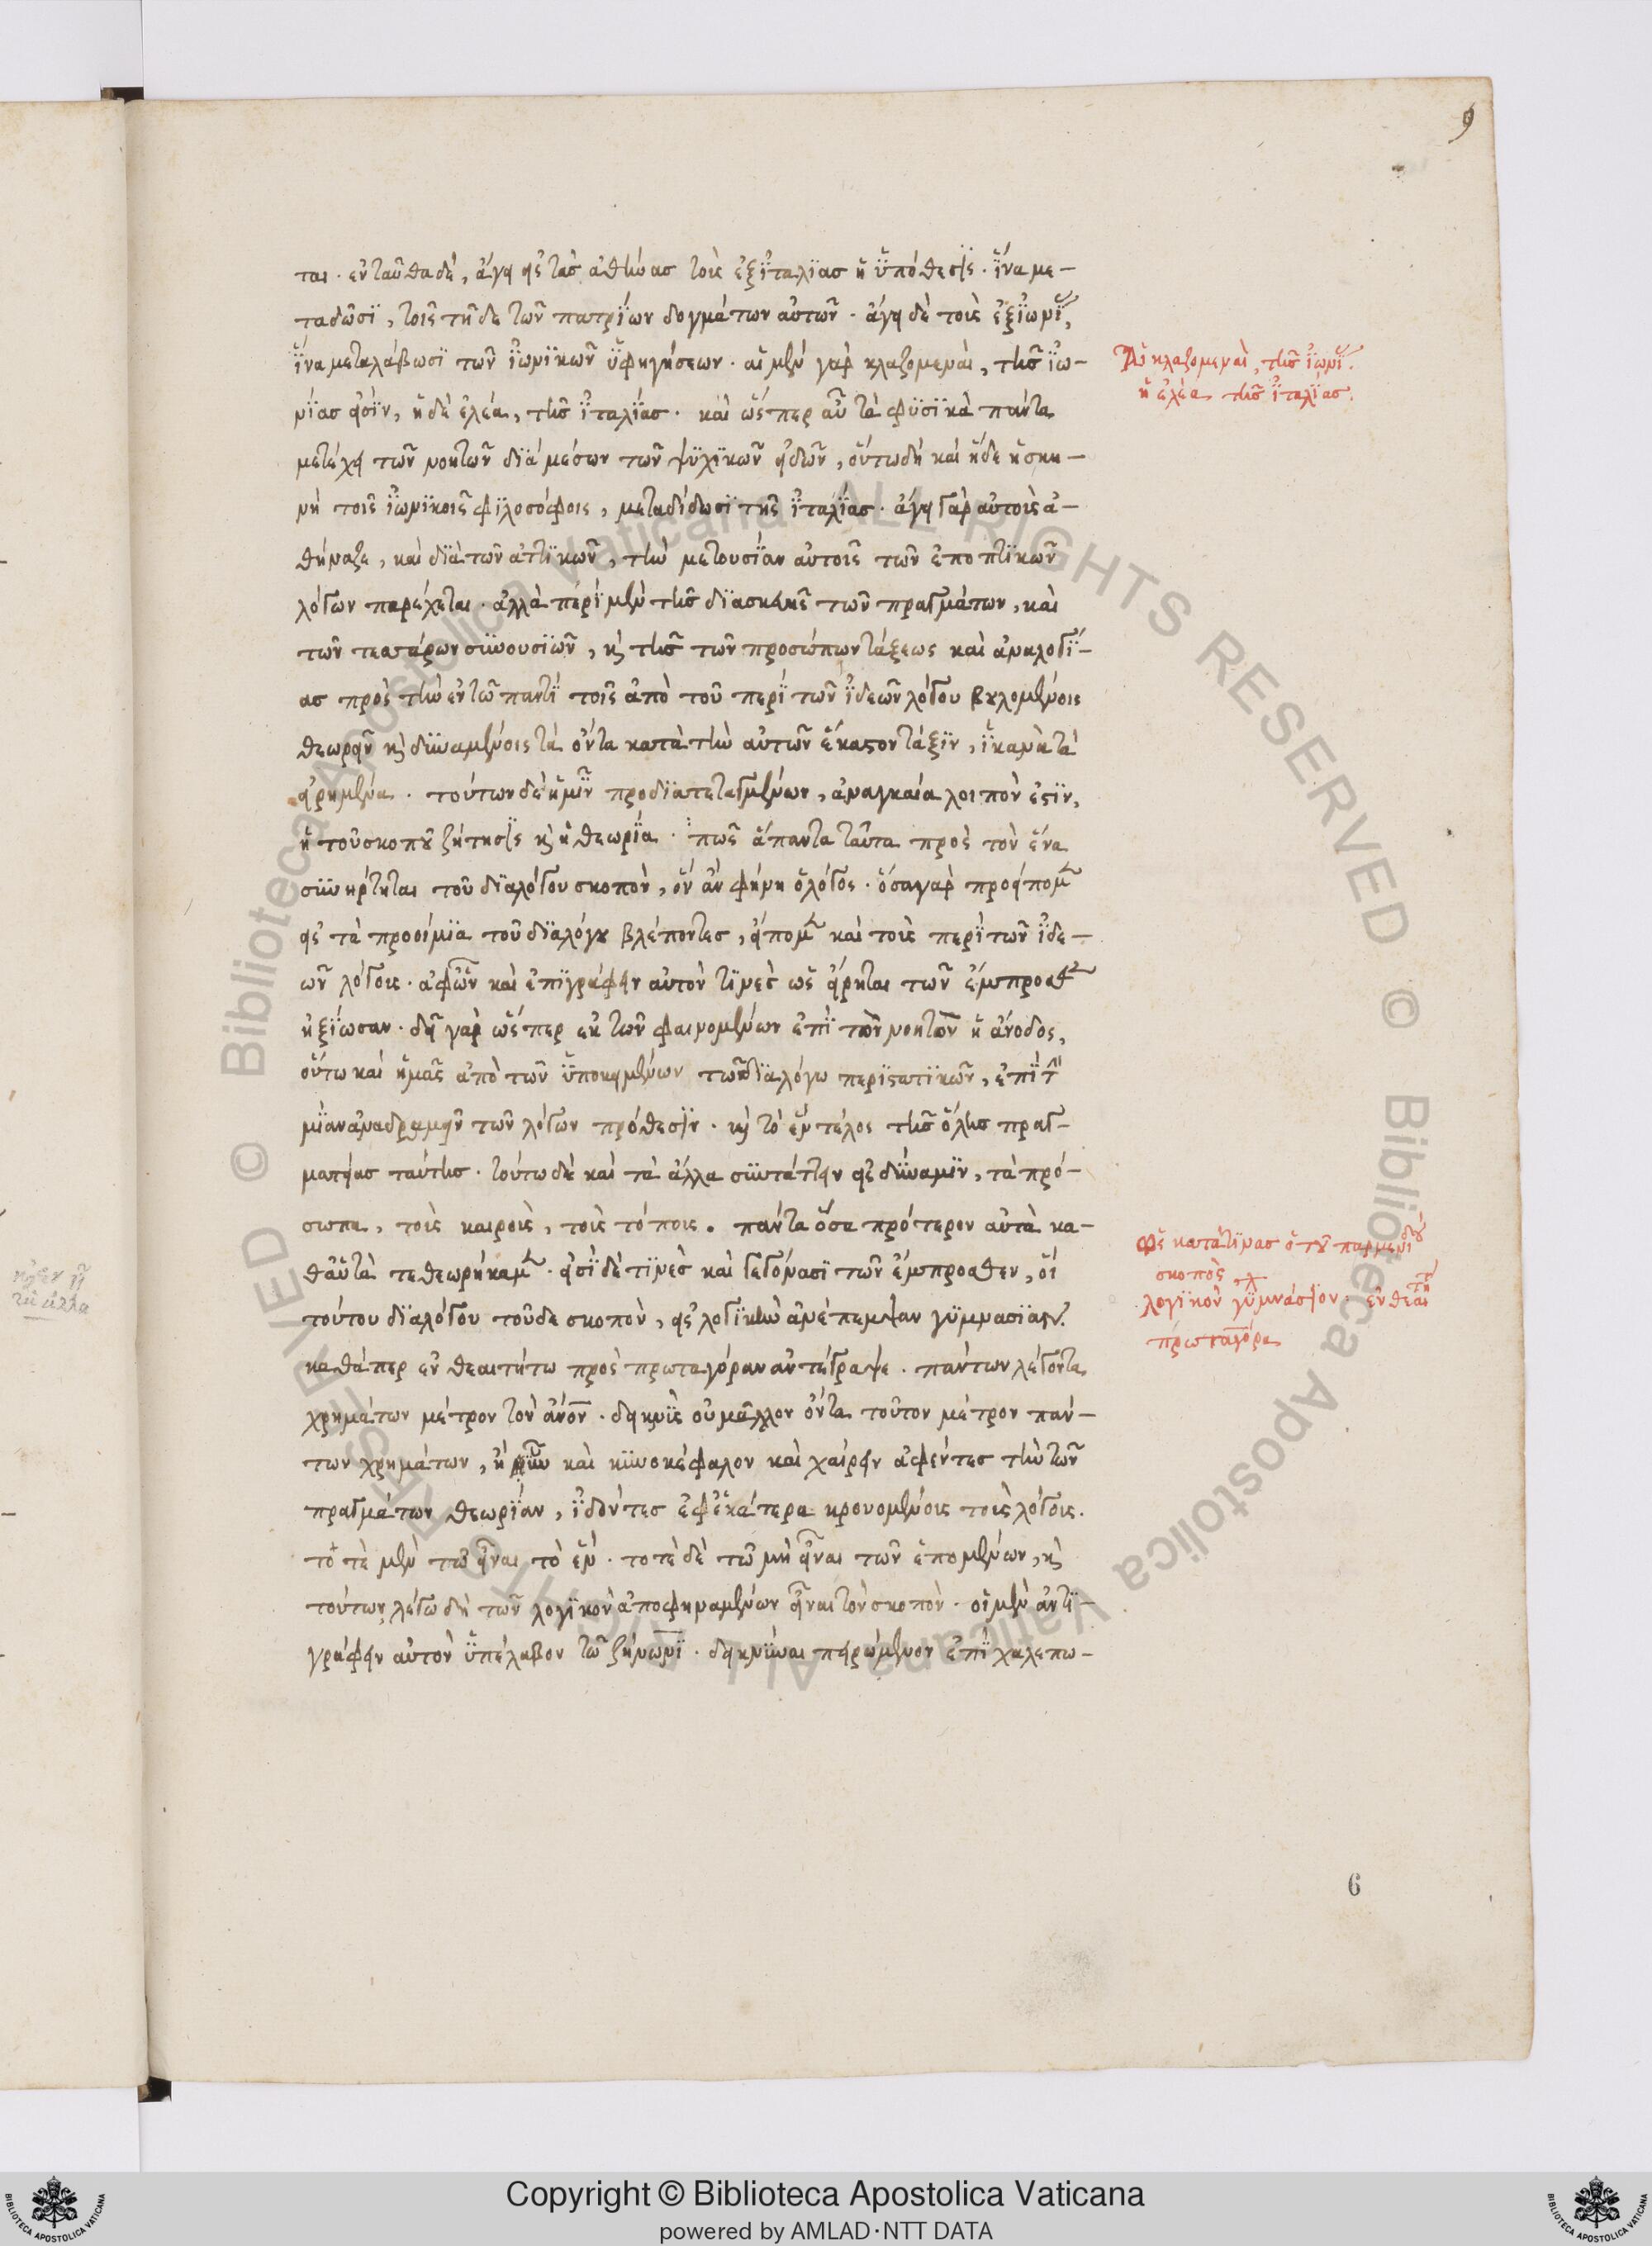 9
ται. ἐνταῦθα δὲ, ἄγει εἰς τὰς ἀθήνας τοὺς ἐξ ἰταλίας ἡ ὑπόθεσις. ἵνα με-
ταδῶσι, τοῖς τῇδε τῶν πατρίων δογμάτων αὐτῶν. ἄγει δὲ τοὺς ἐξ ἰωνί,
ἵνα μεταλάβωσι τῶν ἰωνικῶν ὑφηγήσεων. αἱ μὲν γὰρ κλαζομεναὶ, τῆς ἰω-
νίας εἰσὶν, ἡ δὲ ἐλέα, τῆς ἰταλίας. καὶ ὥσπερ αὖ τὰ φυσικὰ πάντα
μετέχει τῶν νοητῶν διὰ μέσων τῶν ψυχικῶν εἰδῶν, οὕτω δὴ καὶ ἥδε ἡ σκη-
νὴ τοῖς ἰωνικοῖς φιλοσόφοις, μεταδίδωσι τῆς ἰταλίας. ἄγει γὰρ αὐτοὺς ἀ-
θήναζε, καὶ διὰ τῶν ἀττικῶν, τὴν μετουσίαν αὐτοῖς τῶν ἐποπτικῶν
λόγων παρέχεται. ἀλλὰ περὶ μὲν τῆς διασκευῆς τῶν πραγμάτων, καὶ
τῶν τεσσάρων συνουσιῶν, κὶ τῆς τῶν προσώπων τάξεως καὶ ἀναλογί-
ας πρὸς τὴν ἐν τῷ παντὶ τοῖς ἀπὸ τοῦ περὶ τῶν ἰδεῶν λόγου βουλομένοις
θεωρεῖν κὶ δυναμένοις τὰ ὄντα κατὰ τὴν αὐτῶν ἕκαστον τάξιν, ἱκανὰ τὰ
εἰρημένα. τούτων δὲ ἡμῖν προδιατεταγμένων, ἀναγκαία λοιπὸν ἐστὶν,
ἡ τοῦ σκοποῦ ζήτησις κὶ ἡ θεωρία. πῶς ἅπαντα ταῦτα πρὸς τὸν ἕνα
συνήρτηται τοῦ διαλόγου σκοπὸν, ὃν ἂν φήνῃ ὁ λόγος. ὅσα γὰρ προείπομ
εἰς τὰ προοίμια τοῦ διαλόγου βλέποντες, εἴπομ καὶ τοὺς περὶ τῶν ἰδε-
ῶν λόγους. ἀφ ὧν καὶ ἐπιγράφειν αὐτὸν τινὲς ὡς εἴρηται τῶν ἔμπροσθ
ἠξίωσαν. δεῖ γὰρ ὥσπερ ἐκ τῶν φαινομένων ἐπὶ τῶν νοητῶν ἡ ἄνοδος,
οὕτω καὶ ἡμᾶς ἀπὸ τῶν ὑποκειμένων τῷ διαλόγω περιστατικῶν, ἐπὶ τ
μίαν ἀναδραμεῖν τῶν λόγων πρόθεσιν. κὶ τὸ ἓν τέλος τῆς ὅλης πραγ-
ματείας ταύτης. τούτω δὲ καὶ τὰ ἄλλα συντάττειν εἰς δύναμιν, τὰ πρό-
σωπα, τοὺς καιροὺς, τοὺς τόπους. πάντα ὅσα πρότερον αὐτὰ κα-
θ αὑτὰ τεθεωρήκαμ. εἰσὶ δὲ τινὲς καὶ γεγόνασι τῶν ἔμπροσθεν, οἳ
τούτου διαλόγου τοῦδε σκοπὸν, εἰς λογικὴν ἀνέπεμψαν γυμνασίαν.
καθάπερ ἐν θεαιτήτω πρὸς πρωταγόραν ἀντέγραψε. πάντων λέγοντα
χρημάτων μέτρον τὸν ἄνον. δεικνὺς οὐ μᾶλλον ὄντα τοῦτον μέτρον πάν-
των χρημάτων, ἢ ὗν καὶ κυνοκέφαλον καὶ χαίρειν ἀφέντες τὴν τῶν
πραγμάτων θεωρίαν, ἰδόντες ἐφ ἑκάτερα κρουομένοις τοὺς λόγους.
τὸ τὲ μὲν τῶ εἶναι τὸ ἓν. τοτὲ δὲ τῶ μὴ εἶναι τῶν ἑπομένων, κὶ
τούτων λέγω δὴ τῶν λογικὸν ἀποφηναμένων εἶναι τὸν σκοπὸν. οἱ μὲν ἀντι-
γράφειν αὐτὸν ὑπέλαβον τῷ ζήνωνι. δεικνύναι πειρώμενον ἐπὶ χαλεπω-
Αἱ κλαζομεναὶ, τῆς ἰωνί.
ἡ ἐλέα τῆς ἰταλίας.
εἰς κατά τινας ὁ τοῦ παρμενί
σκοπὸς,
λογικὸν γυμνάσιον. ἐν θεαι
πρωταγόρα
6
Copyright © Biblioteca Apostolica Vaticana
powered by AMLAD·NTT DATA
© Biblioteca Apostolica Vaticana ALL RIGHTS RESERVED
© Biblioteca Apostolica Vaticana ALL RIGHTS RESERVED
BIBLIOTECA APOSTOLICA VATICANA
BIBLIOTECA APOSTOLICA VATICANA